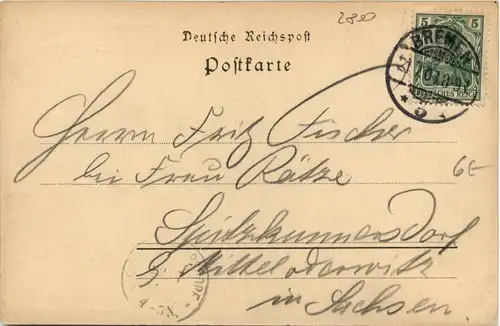 2800
5 5
BREMEN
DEUTSCHES REICH
Deutsche Reichspost
Postkarte
Herrn Fritz Fischer
bei Frau Rätze
6€
Spitzkunnersdorf
b. Mittel oderwitz
in Sachsen.